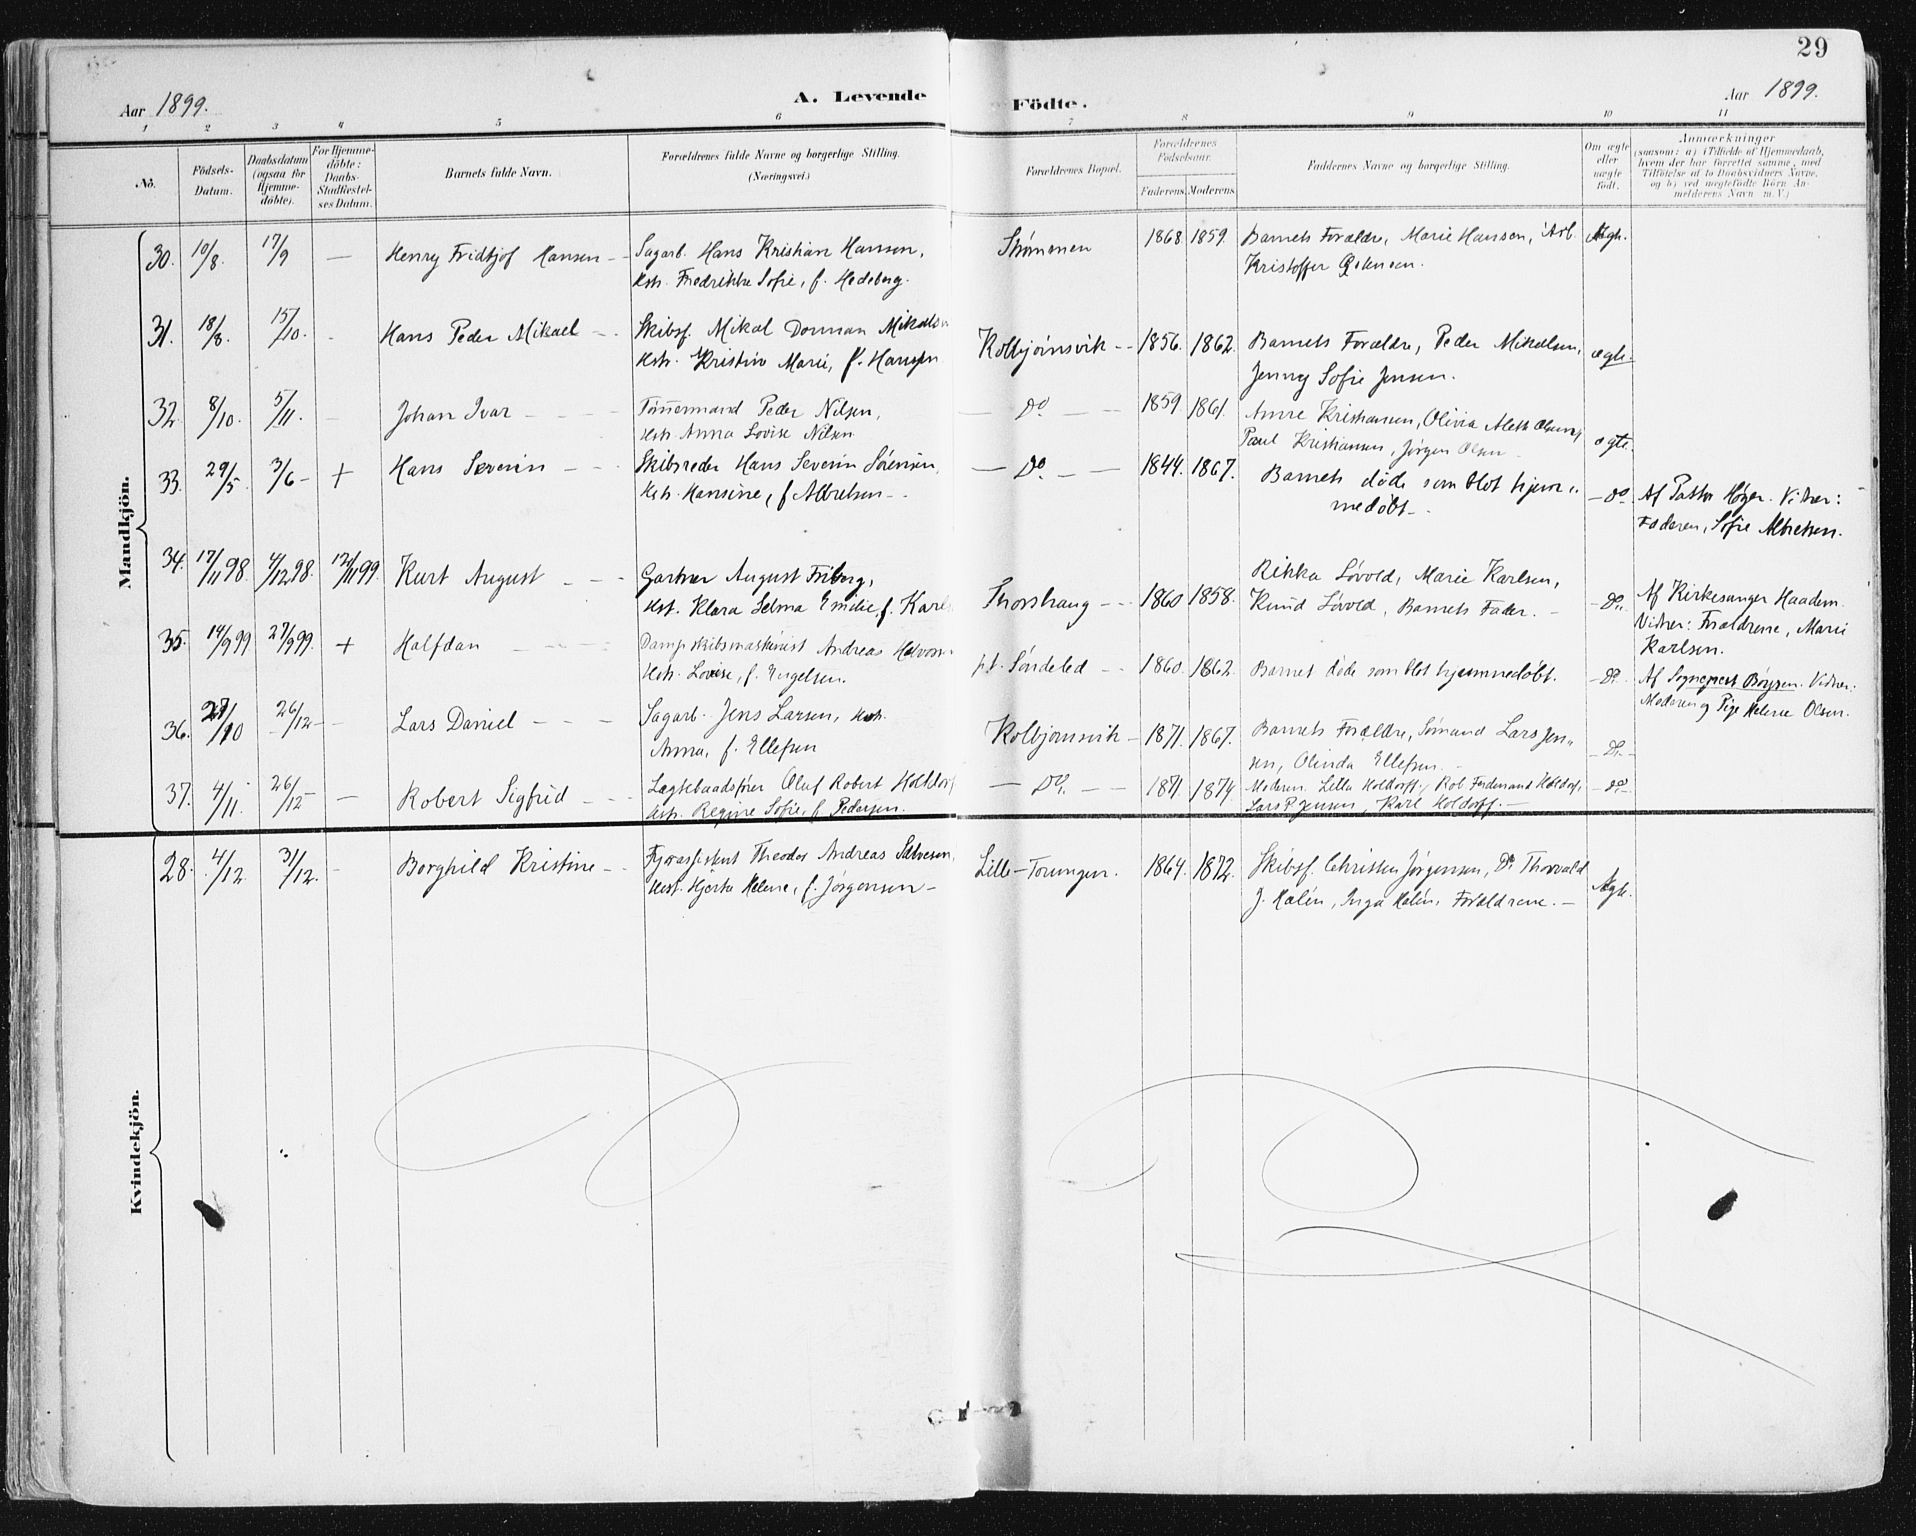 29
Aar 1899.
A. Levende Födte.
Aar 1899.
1 2 3 4 5 6 7 8 9 10 11
No.
Födsels-
Datum.
Daabsdatum
(ogsaa for
Hjemme-
döbte).
For Hjemme-
döbte:
Daabs-
Stadfæstel-
ses Datum.
Barnets fulde Navn.
Forældrenes fulde Navne og borgerlige Stilling.
(Næringsvei.)
Forældrenes Bopæl.
Forældrenes
Födselsaar.
Faderens. Moderens.
Faddernes Navne og borgerlige Stilling.
Om ægte
eller
uægte
födt.
Anmærkninger
(saasom: a) i Tilfælde af Hjemmedaab,
hvem der har forrettet samme, med
Tilföielse af to Daabsvidners Navne,
og b) ved uægtefödte Börn An-
melderens Navn m. V.)
Mandkjön.
30. 10/8. 17/9 — Henry Fridtjof Hansen — Sagarb. Hans Kristian Hansen, Strømmen 1868 1859. Barnets Forældre, Marie Hansen, Arb. Ægte.
Hstr. Fredrikke Sofie, f. Hedeberg. Kristoffer
31. 18/8. 15/10. - Hans Peder Mikael — Skibsf. Mikal Dorman Mikalsen Kolbjørnsvik — 1856. 1862. Barnets Forældre, Peder Mikalsen, ægte
Hstr. Kristine Marie, f. Hansen Jenny Sofie Jensen.
32. 8/10. 5/11. - Johan Ivar — Tømmermand Peder Nilsen, — Do — 1859 1861. Anne Kristiansen, Olivia Aleth Olsen, ægte.
Hstr. Anna Lovise Nilsen Paul Kristiansen, Jørgen Olsen
33. 29/5 3/6 — + Hans Severin — Skibsreder Hans Severin Sørensen, — Do — 1844. 1867. Barnet døde som blot hjem- — Do Af Pastor Høyer. Vidner:
Hstr. Hansine, f Albretsen — medøbt — Faderen, Sofie Albretsen.
34. 17/11 98. 4/12 98. 12/11 99. Kurt August — Gartner August Friberg, Thorshaug — 1860 1858. Rikka Løvold, Marie Karlsen, — Do. Af Kirkesanger Haadem.
Hst. Klara Selma Emilie, f. Karls Knud Løvold, Barnets Fader. — Vidner: Forældrene, Marie
Karlsen.
35. 14/9 99 27/9 99. + Halfdan — Dampskibsmaskinist Andreas Halvorsen p.t. Søndeled — 1860. 1862. Barnet døde som blot hjemmedøbt. — Do. Af Sogneprest Børsen. Vidner:
Hstr. Lovise, f. Engelsen. Moderen og Pige Helene Olsen.
36. 28/10 26/12 — Lars Daniel — Sagarb. Jens Larsen, Hstr. Kolbjørnsvik — 1871. 1867. Barnets Forældre, Sømand Lars Jen- — Do —
Anna, f. Ellefsen sen, Olinda Ellefsen. —
37. 4/11. 26/12 — Robert Sigfrid — Lægtebaadsfører Oluf Robert Holtdorf — Do. — 1871. 1874. Moderen. Lilla Holdorff, Rob Ferdinand Holdorf, — Do —
Hstr. Regine Sofie, f. Pedersen. Lars P. Jensen, Karl Holdorff. —
Kvindekjön.
28. 4/12. 31/12. - Borghild Kristine — Fyrassistent Theodor Andreas Salvesen, Lille-Torungen. 1864. 1872. Skibsf. Christen Jørgensen, Do Thorvald Ægte.
Hst. Hjerta Helene, f. Jørgensen — J. Halén, Inga Halén, Forældrene. —